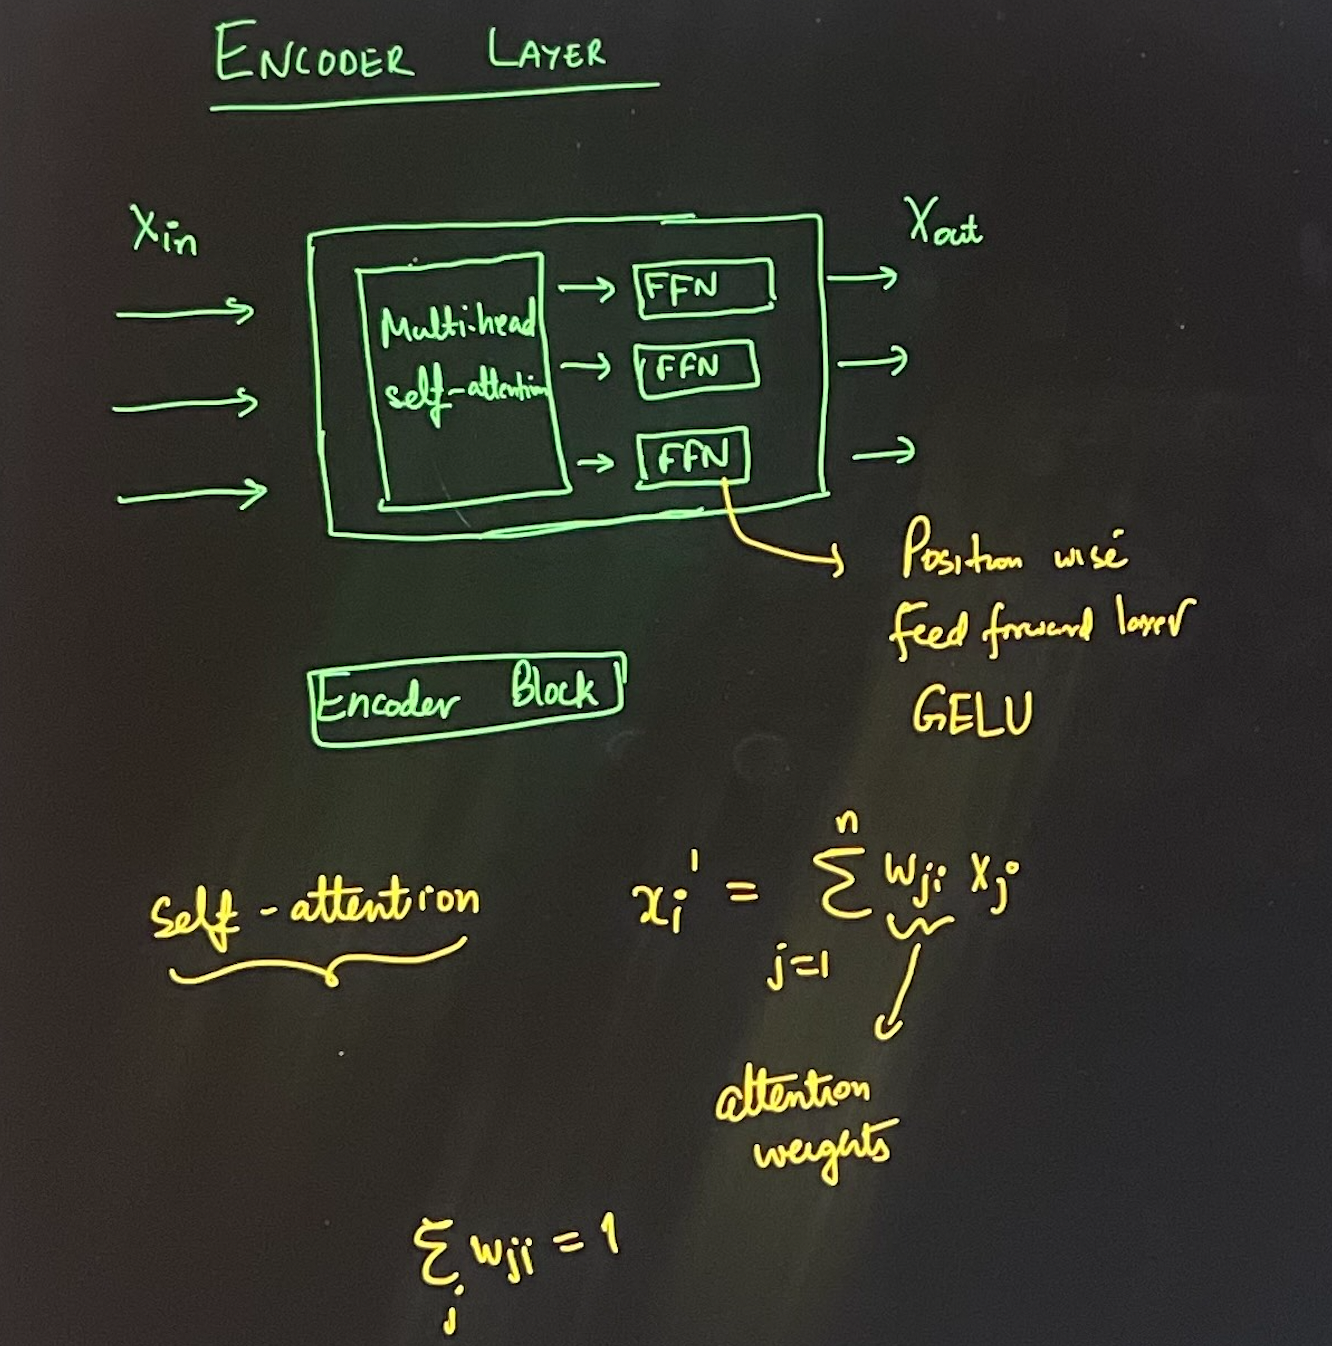 ENCODER LAYER
Xin
Xout
Multi-head
self-attention
FFN
FFN
FFN
Position wise
feed forward layer
GELU
Encoder Block
self-attention
xi' = Σ wji xj
n
j=1
attention
weights
Σ wji = 1
j